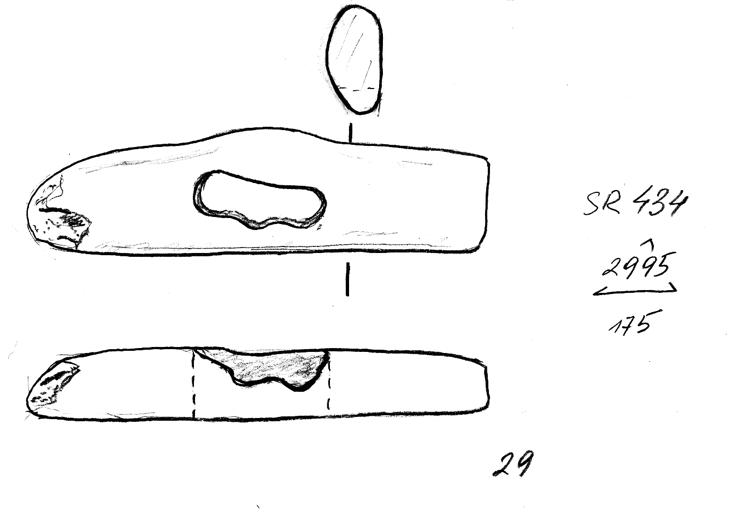 SR 434
2995
175
29